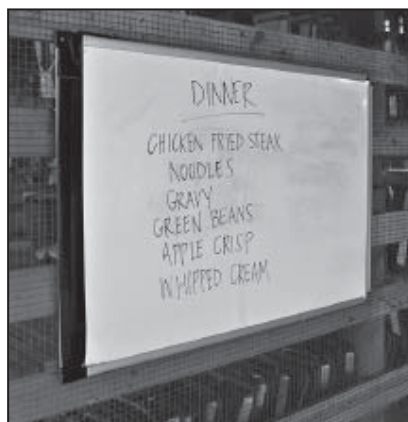 DINNER
CHICKEN FRIED STEAK
NOODLES
GRAVY
GREEN BEANS
APPLE CRISP
WHIPPED CREAM